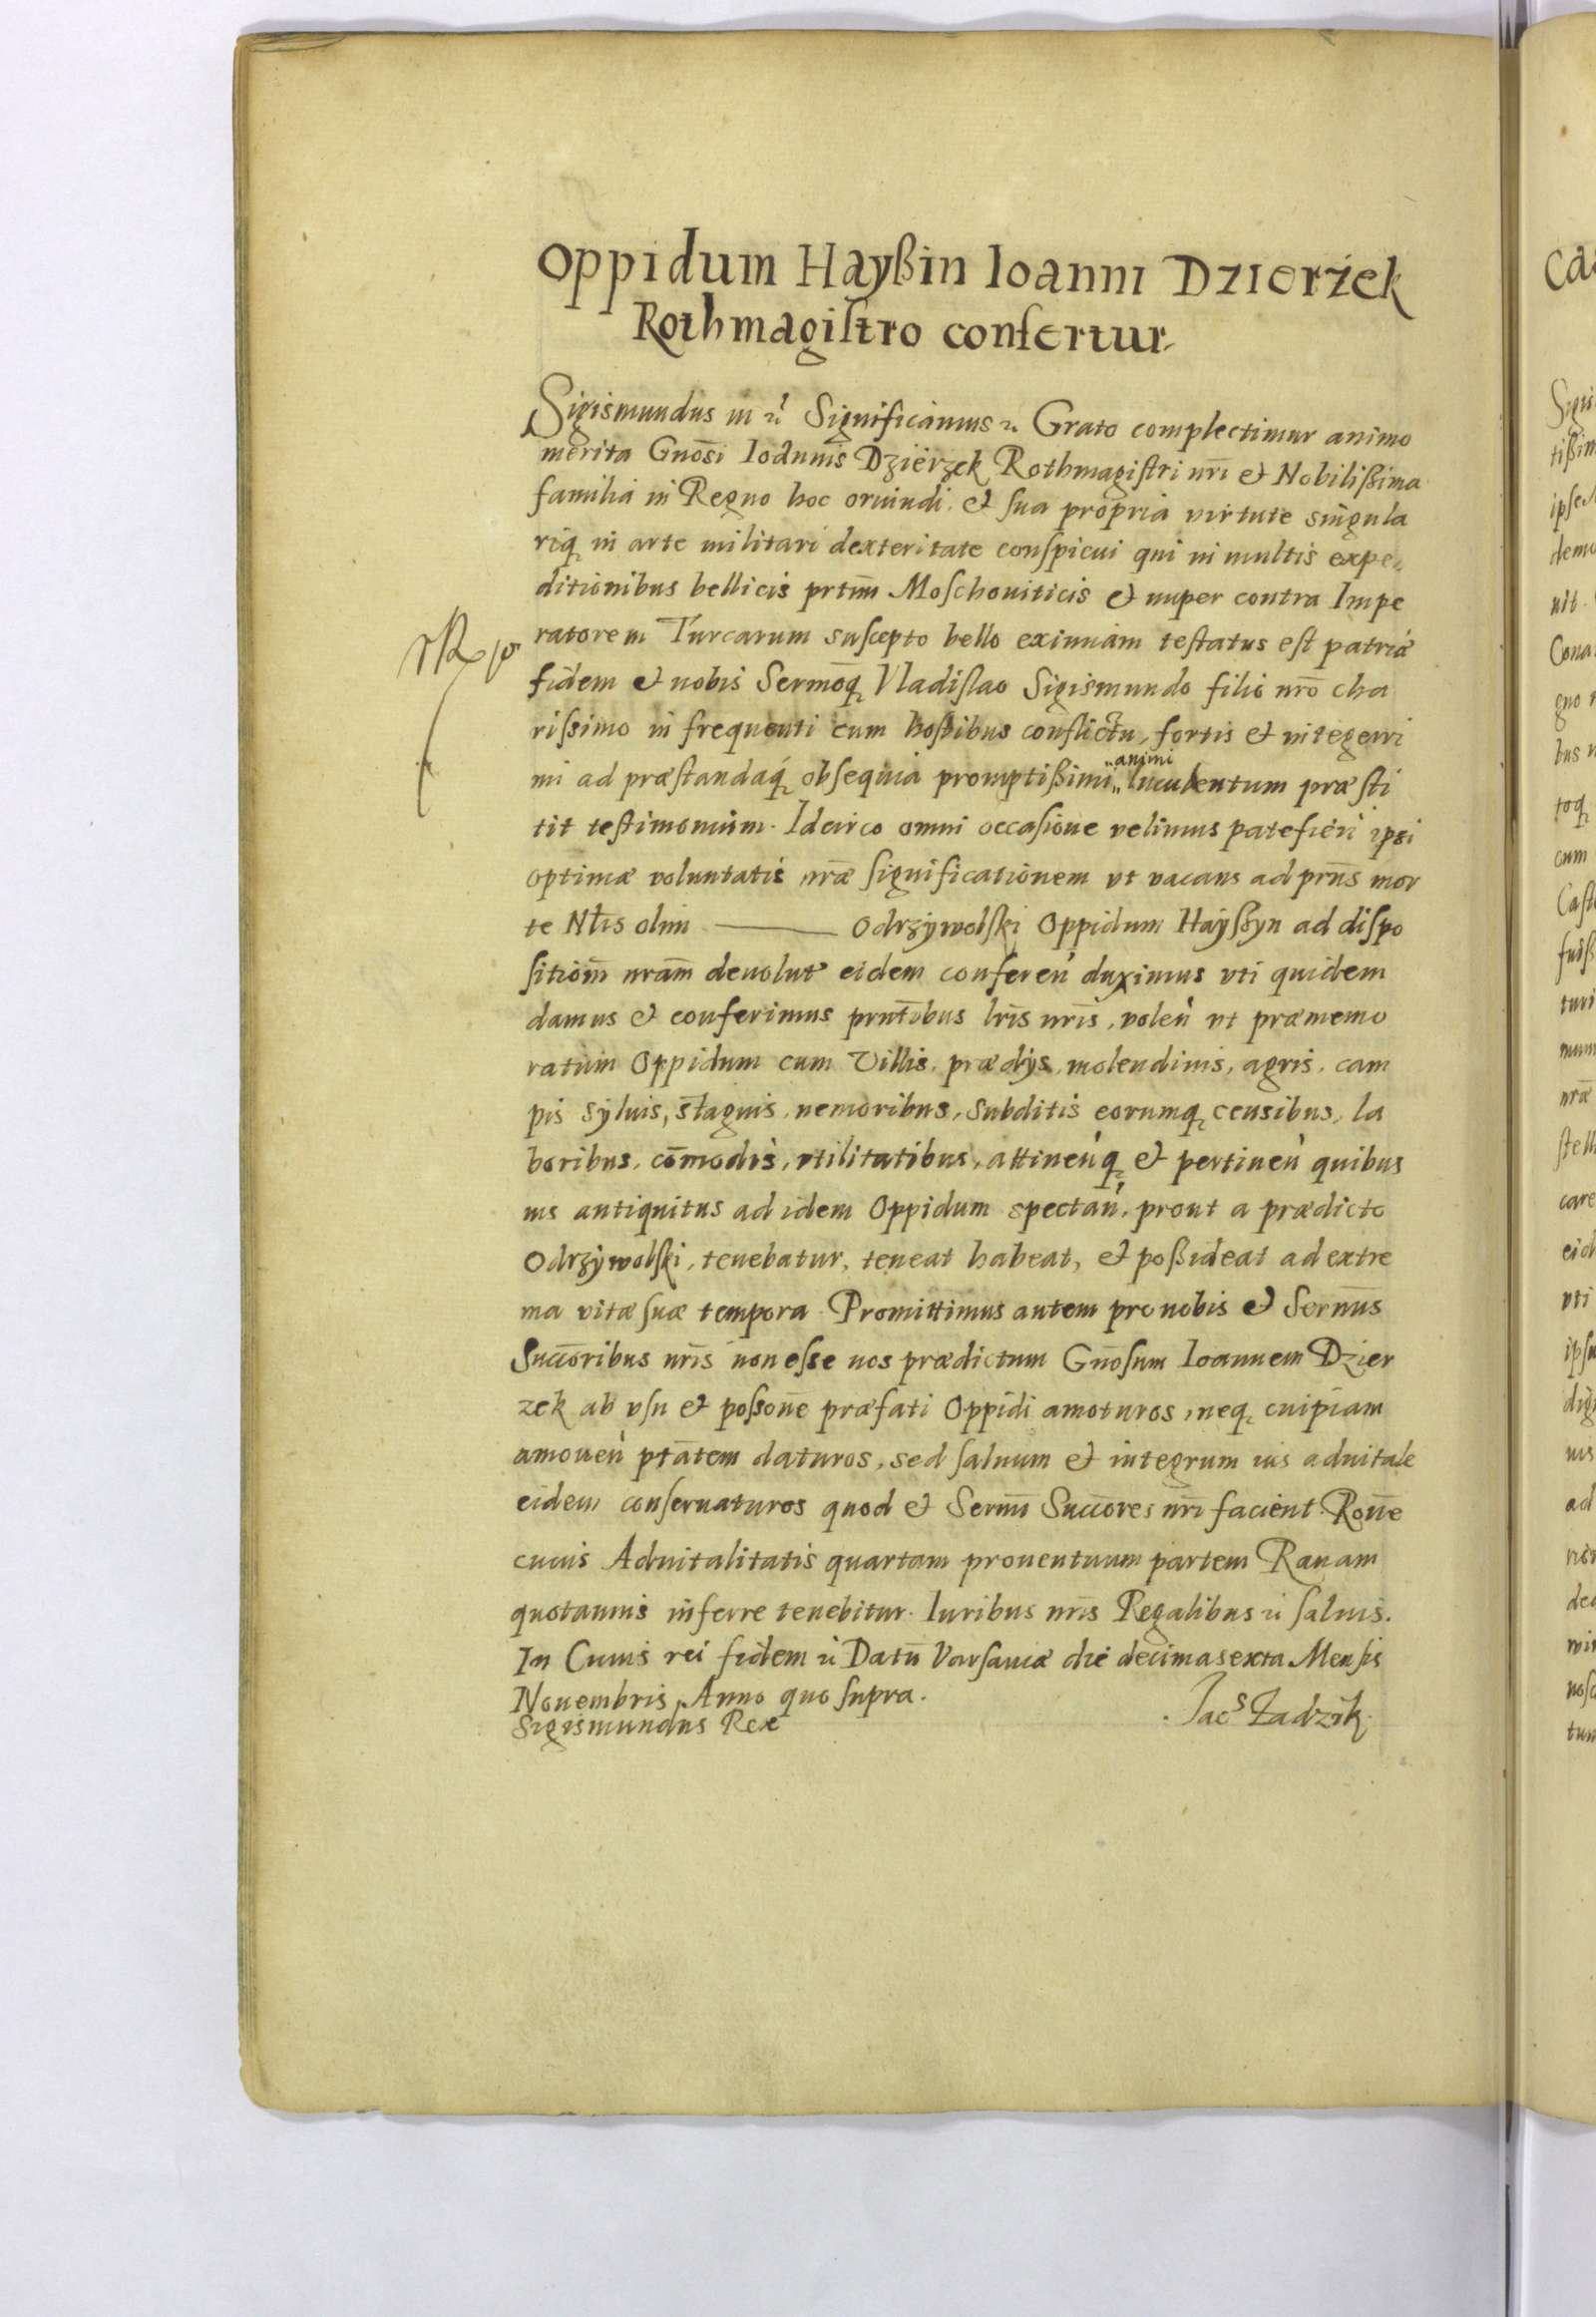 Oppidum Hayßin Ioanni Dzierżek
Rothmagistro confertur
Sigismundus III &c Significamus &c Grato complectimur animo
merita Gnōsi Ioannis Dzierzek Rothmagistri nrī et Nobilißima
familia in Regno hoc oriundi. et sua propria virtute singula
riq; in arte militari dexteritate conspicui qui in multis expe
ditionibus bellicis prtīm Moschouiticis et nuper contra Impe
ratorem Turcarum suscepto bello eximiam testatus est patriæ
fidem et nobis Sermōq; Vladislao Sigismundo filio nrō cha
rissimo in frequenti cum hostibus conflictu, fortis et integerri
mi ad præstandaq; obsequia promptißimi animi luculentum præsti
tit testimonium. Idcirco omni occasione velimus patefieri ipsi
optimæ voluntatis nrǣ significationem vt vacans ad prns̄ mor
te Nlis̄ olim ——— Odrzywolski Oppidum Hayßyn ad dispo
sitiom̄ nram̄ deuolut' eidem conferen' duximus vti quidem
damus et conferimus prnt̄ibus lrīs nrīs, volen' vt præmemo
ratum Oppidum cum Villis, prædijs, molendinis, agris, cam
pis syluis, stagnis, nemoribus, subditis eorumq; censibus, la
boribus, com̄odis, vtilitatibus, attinen'q; et pertinen' quibus
uis antiquitus ad idem Oppidum spectan', prout a prædicto
Odrzywolski, tenebatur, teneat habeat, et poßideat ad extre
ma vitæ suæ tempora. Promittimus autem pro nobis et Sernūs
Succōribus nrīs non esse nos prædictum Gnōsum Ioannem Dzier
zek ab vsu et possonē præfati Oppidi amoturos, neq; cuipiam
amouen' ptātem daturos, sed saluum et integrum ius aduitale
eidem conseruaturos quod et Sermī Succōres nrī facient. Ronē
cuius Aduitalitatis quartam prouentuum partem Rauam
quotannis inferre tenebitur. Iuribus nrīs Regalibus &c saluis.
In Cuius rei fidem &c Datū Varsauiæ die decimasexta Mensis
Nouembris Anno quo supra.
Sigismundus Rex
Jacs Zadzik